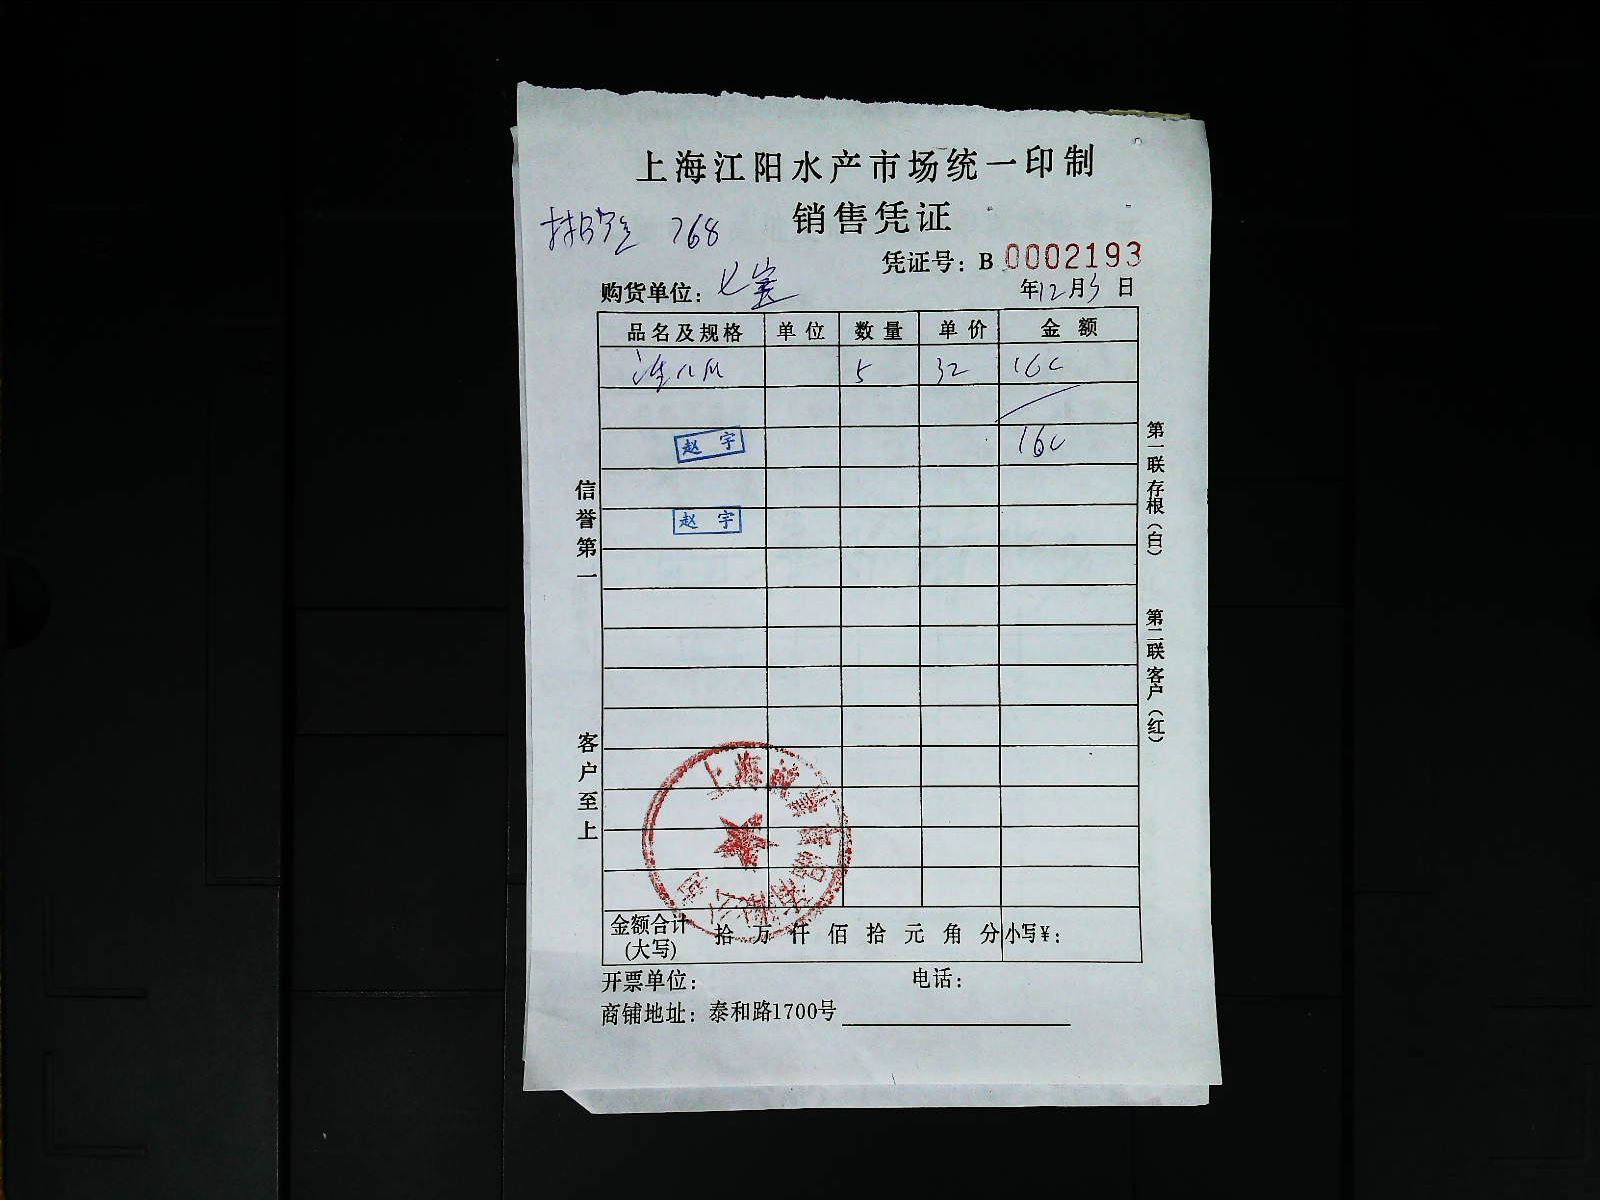 上海江阳水产市场统一印制
768
销售凭证
凭证号：B 0002193
购货单位：七宝
年12月3日
品名及规格 单位 数量 单价 金额
5 32 160
160
赵宇
赵宇
信誉第一
客户至上
第一联存根（白）
第二联客户（红）
上海 有限公司
金额合计(大写) 拾万仟佰拾元角分 小写¥：
开票单位： 电话：
商铺地址：泰和路1700号